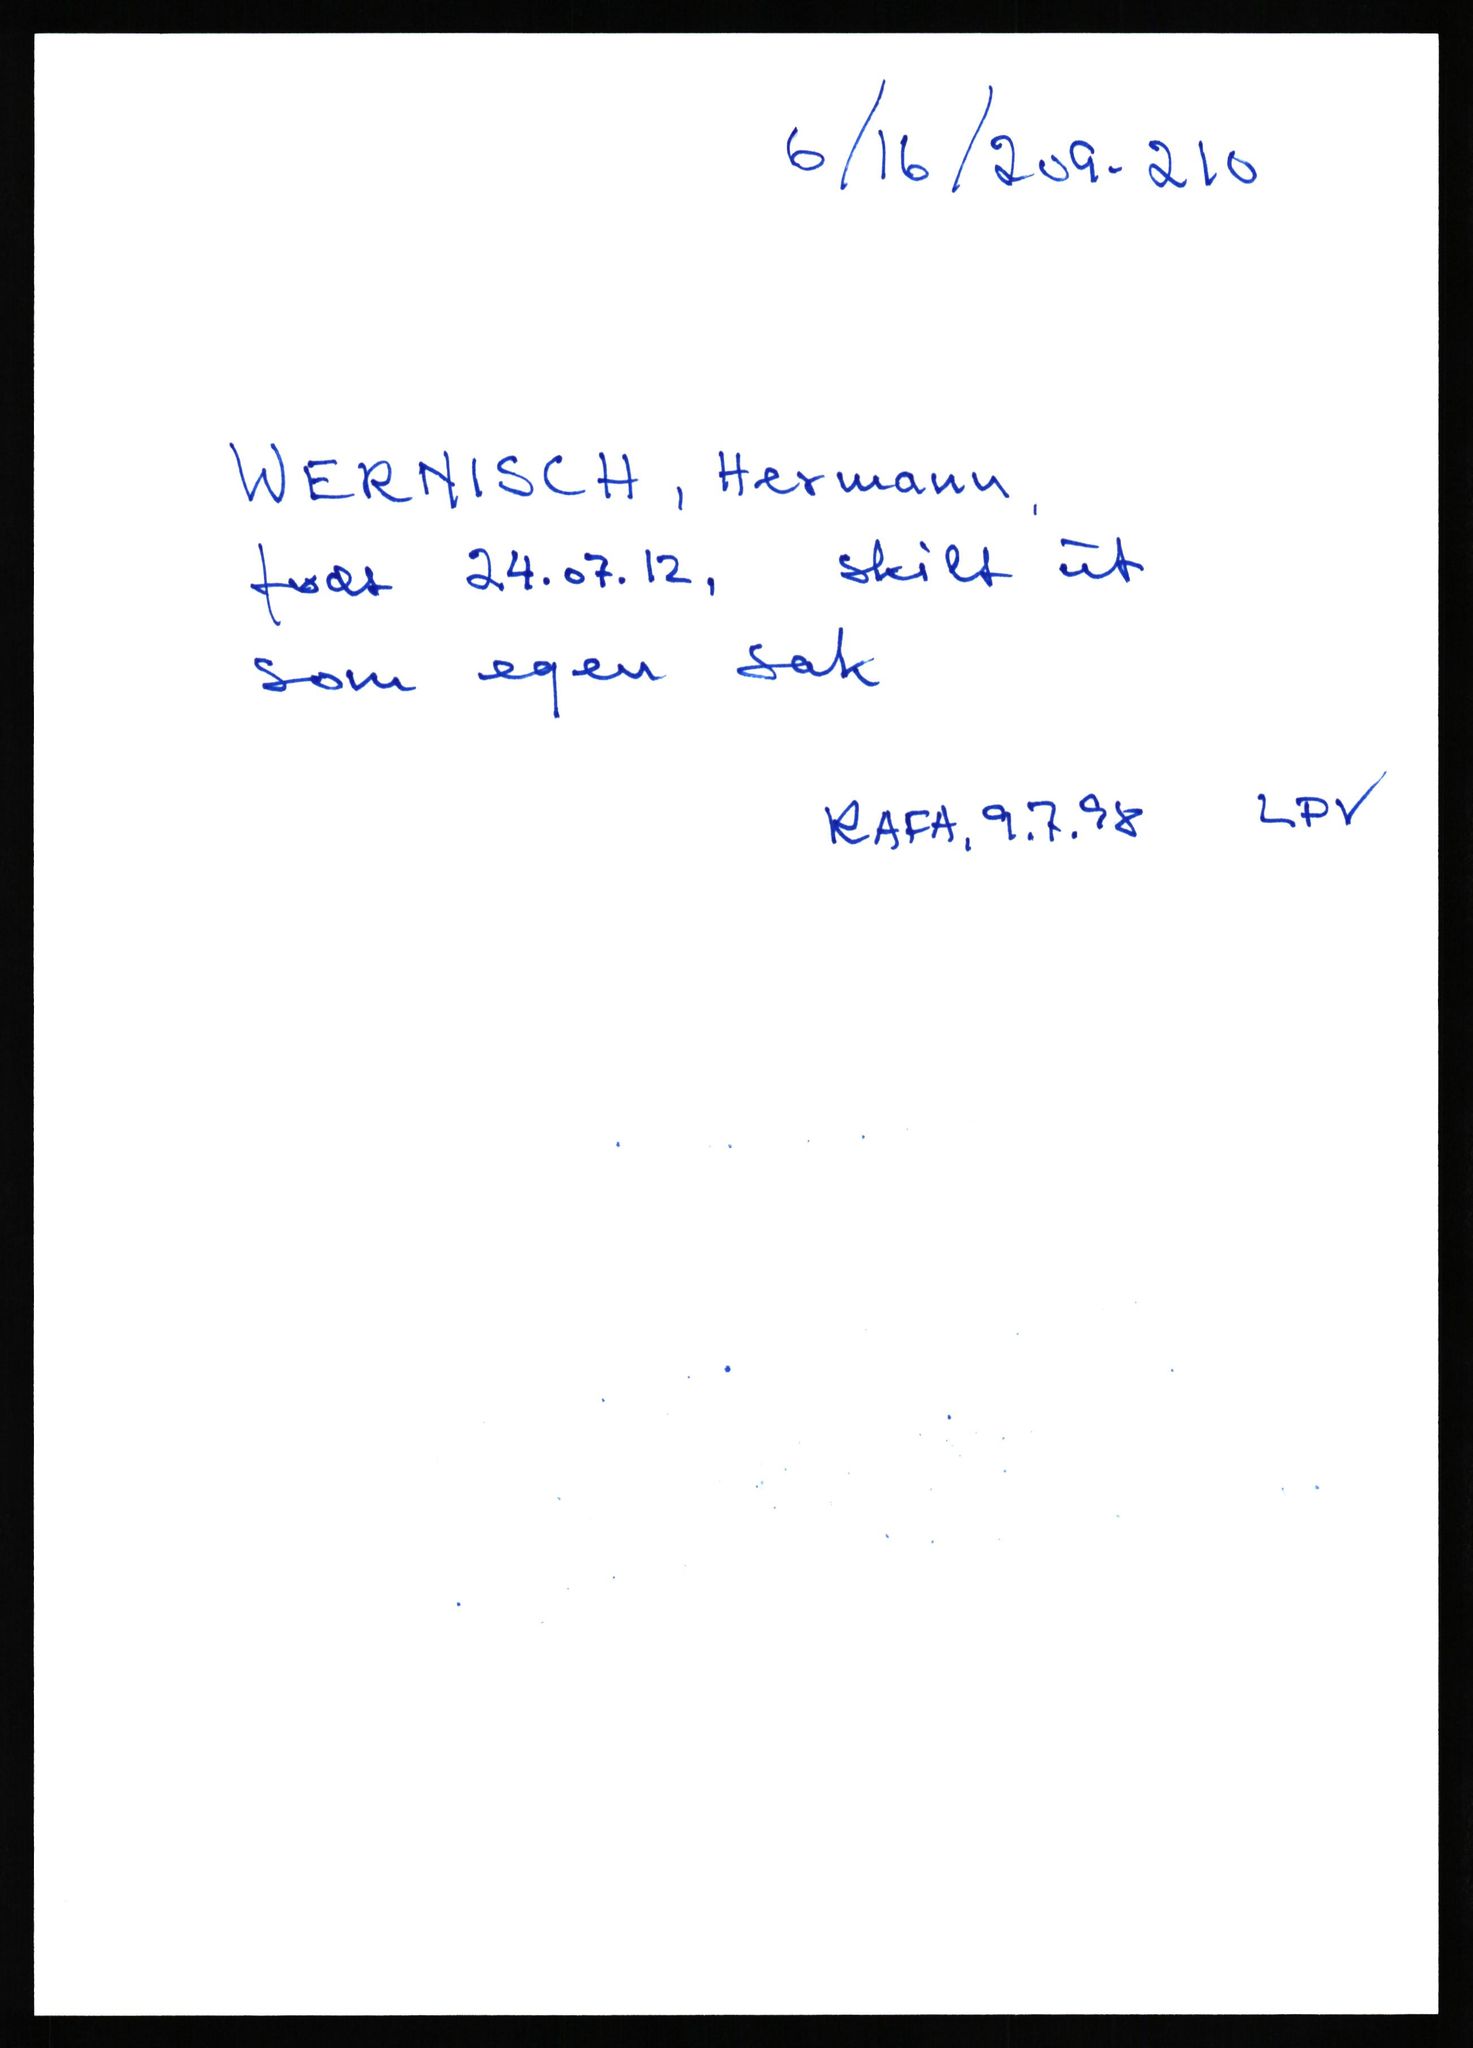 6/16/209-210
WERNISCH, Hermann,
født 24.07.12, skilt ūt
som egen sak
RAFA, 9.7.98 LPV